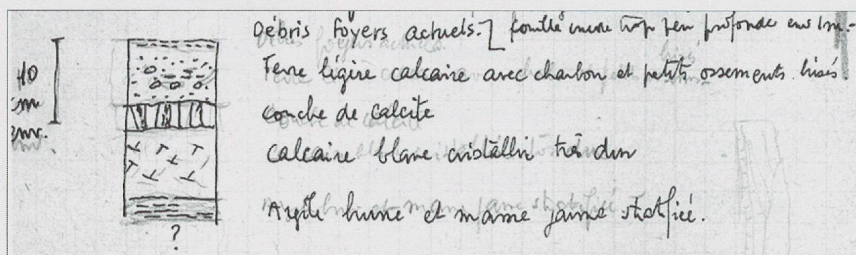 Débris foyers actuels. ] fouille encore trop peu profonde env 1m.-
Terre légère calcaire avec charbon et petits ossements brisés.
couche de calcite
calcaire blanc cristallin très dur
Argile brune et marne jaune stratifiée.
40
cm
env.
?